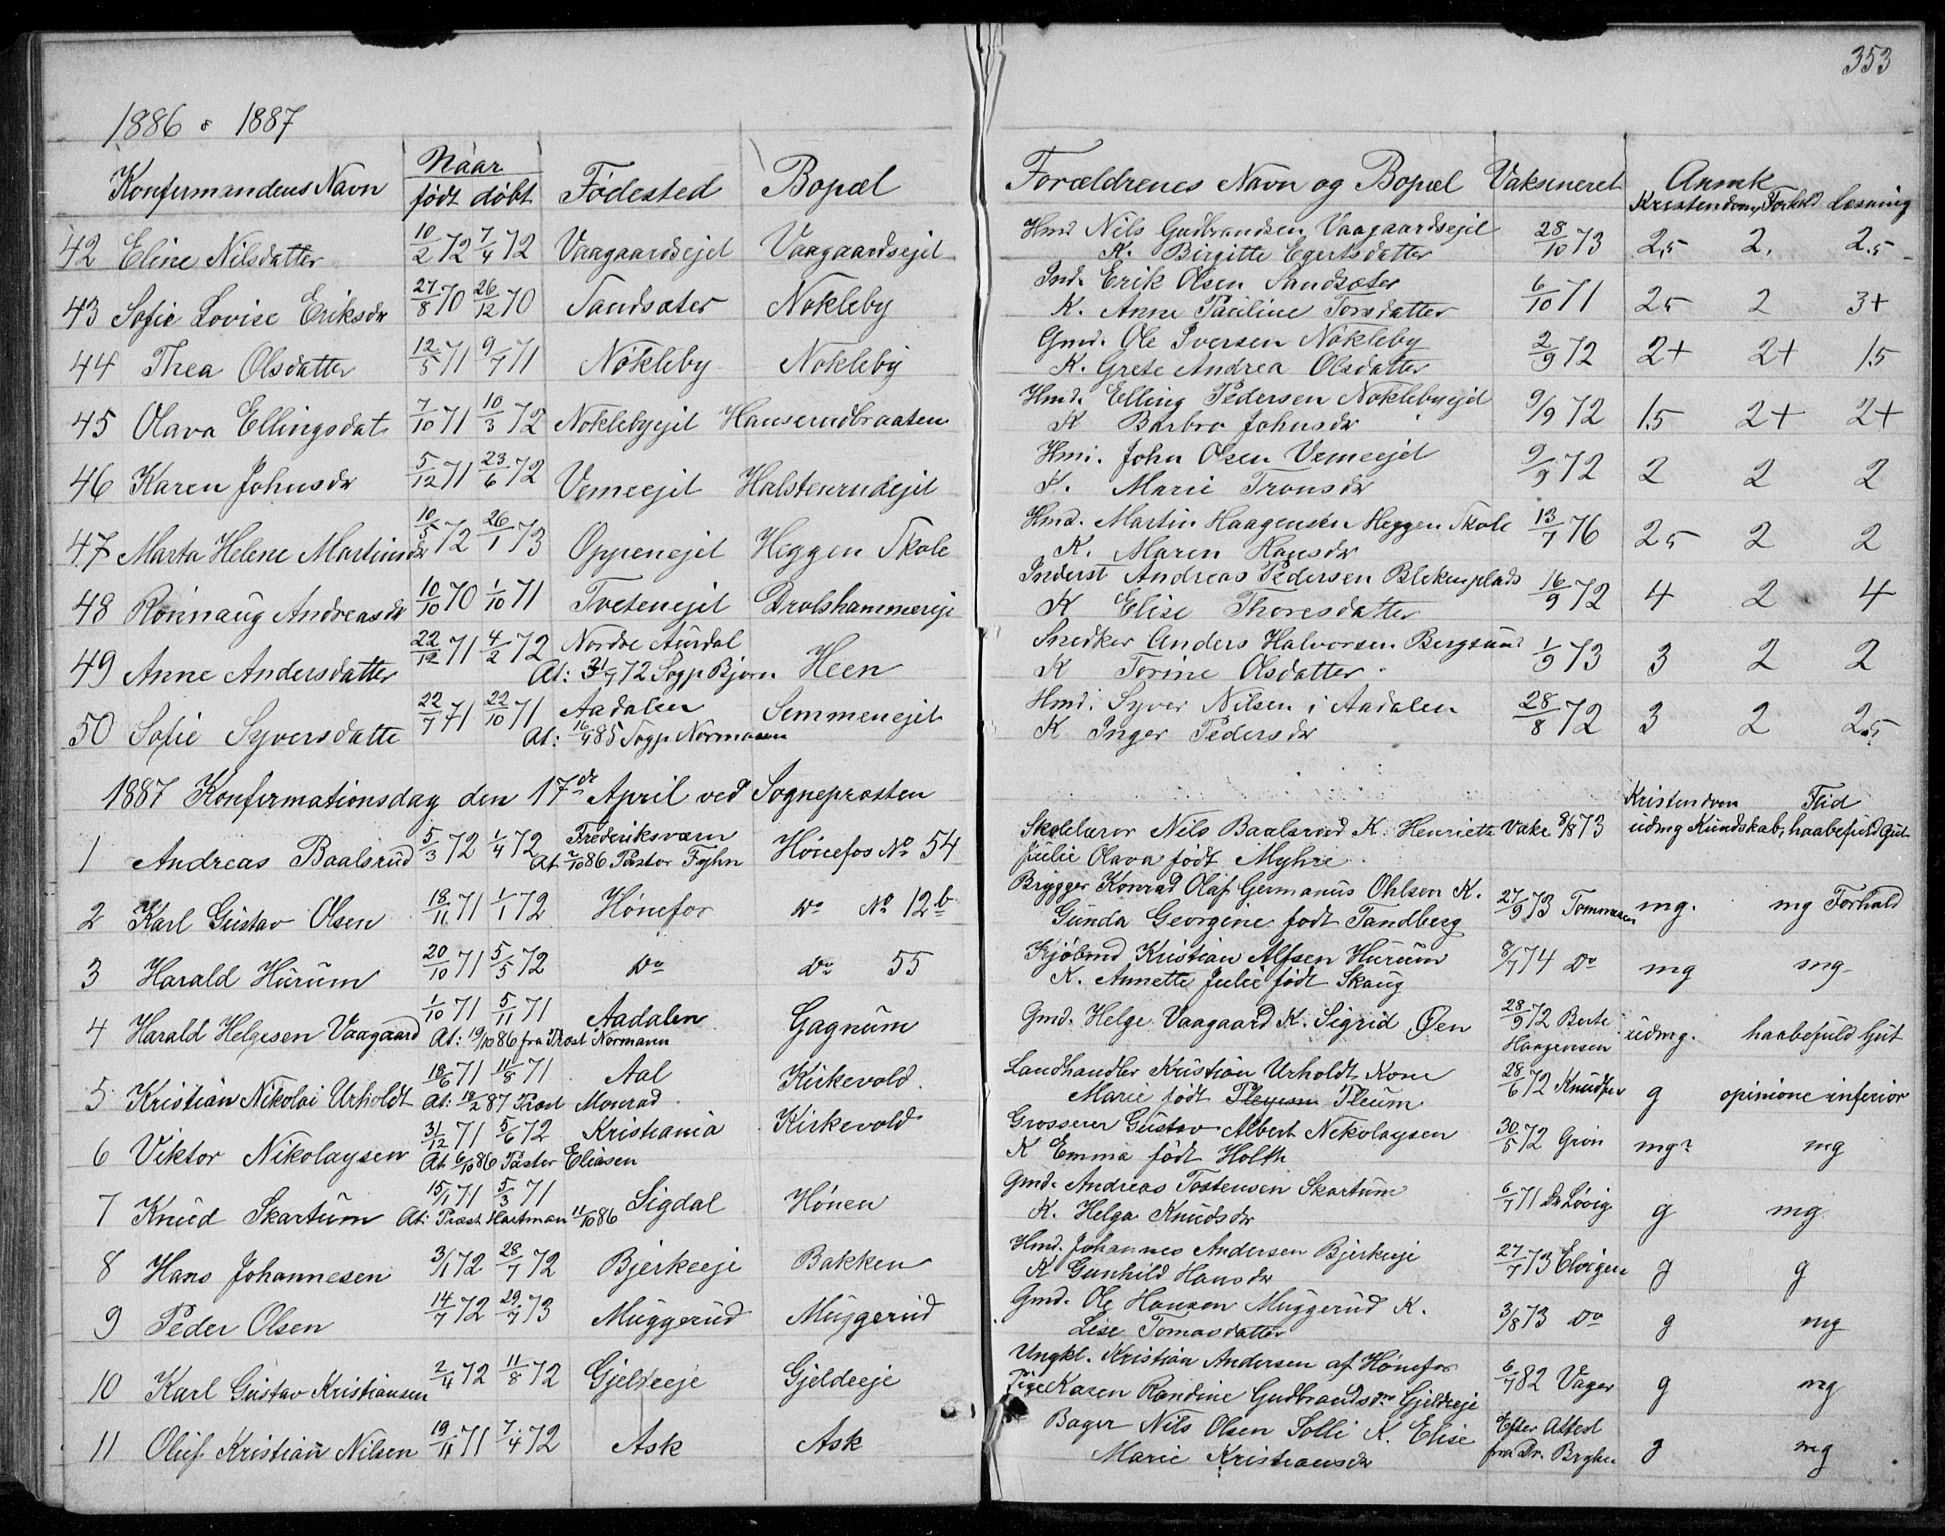 353
1886 & 1887
Konfirmandens Navn Naar født døbt Fødested Bopæl Forældrenes Navn og Bopæl Vaksineret Anmk Kristendom, Forhold læsning
42 Eline Nilsdatter 10/2 72 7/4 72 Vaagaardsejet Vaagaardsejet Hmd Nils Gudbrandsen Vaagaardsejet 28/10 73 2,5 2. 2.5
K. Birgitte Egertsdatter
43 Sofie Lovise Eriksdr 27/8 70 26/12 70 Sandsæter Nøkleby Ind. Erik Olsen Sandsæter 6/10 71 25 2 3+
K. Anne Pauline Torsdatter
44 Thea Olsdatter 12/5 71 9/7 71 Nøkleby Nøkleby Gmd. Ole Iversen Nøkleby 2/9 72 2+ 2+ 1.5
K. Grete Andrea Olsdatter
45 Olava Ellingsdat 7/10 71 10/3 72 Nøklebyejet Hanserudbraaten Hmd. Elling Pedersen Nøklebyejet 9/9 72 1.5 2+ 2+
K Barbro Johnsdr
46 Karen Johnsdr 5/12 71 23/6 72 Vemeejet Halstenrudejet Hmd. John Olsen Vemeejet 9/9 72 2 2 2
K. Marie Tronsdr
47 Marta Helene Martinsdr 10/5 72 26/1 73 Oppenejet Heggen Skole Hmd. Martin Haagensen Heggen Skole 13/7 76 2,5 2 2
K. Maren Hansdr
48 Rönnaug Andreasdr 10/10 70 1/10 71 Tvetenejet Drolshammereje Inderst Andreas Pedersen Blekenplads 16/9 72 4 2 4
K Elise Thoresdatter
49 Anne Andersdatter 22/12 71 4/2 72 Nordre Aurdal Heen Snedker Anders Halvorsen Bergsund 1/9 73 3 2 2
At: 21/7 72 Sogp Bjørn K Torine Olsdatter
50 Sofie Syversdatte 22/7 71 22/10 71 Aadalen Semmenejet Hmd. Syver Nilsen i Aadalen 28/8 72 3 2 2.5
At: 16/4 85 Sogp Normann K Inger Pedersdr
1887 Konfirmationsdag den 17de April ved Sogneprosten Kristendom Flid
1 Andreas Baalsrud 5/3 72 1/4 72 Frederiksværn Hønefos No 54 Skolelærer Nils Baalsrud K. Henriette Vake 9/8 73 udmg Kundskab, haabefuld Gut
At 2/10 86 Pastor Fyhn Julie Olava født Myhre
2 Karl Gustav Olsen 18/11 71 1/1 72 Hønefos Do No 12b Brygger Konrad Olaf Germanus Ohlsen K. 27/9 73 Tommesen mg. mg Forhold
Gunda Georgine født Tandberg
3 Harald Hurum 20/10 71 5/5 72 Do Do 55 Kjøbmd Kristian Alfsen Hurum 8/7 74 Do mg mg
K. Annette Julie født Skaug
4 Harald Helgesen Vaagaard 1/10 71 5/11 71 Aadalen Gagnum Gmd. Helge Vaagaard K. Sigrid Øen 28/9 72 Berte Haagensen udmg. haabefuld Gut
At: 19/10 86 fra Prost Normann
5 Kristian Nikolai Urholdt 18/6 71 11/8 71 Aal Kirkevold Landhandler Kristian Urholdt Kone 28/6 72 Knudsen g opinione inferior
At: 18/2 87 Prost Monrad Marie født Pleum
6 Viktor Nikolaysen 31/12 71 5/6 72 Kristiania Kirkevold Grosserer Gustav Albert Nikolaysen 30/5 72 Grøn mg? mg
At 6/10 86 Pastor Eliasen K Emma født Holth
7 Knud Skartum 15/1 71 5/3 71 Sigdal Hønen Gmd. Andreas Tostensen Skartum 6/7 71 Dr Løvig g mg
At: Prost Hartman 11/10 86 K. Helga Knudsdr
8 Hans Johannesen 3/1 72 28/7 72 Bjerkeeje Bakken Hmd. Johannes Andersen Bjerkeeje 27/7 73 Elvigen g g
K Gunhild Hansdr
9 Peder Olsen 14/7 72 29/7 73 Muggerud Muggerud Gmd. Ole Hansen Muggerud K. 3/8 73 Do g mg
Lise Tomasdatter
10 Karl Gustav Kristiansen 2/4 72 11/8 72 Gjeldeeje Gjeldeeje Ungkl. Kristian Andersen af Hønefos 6/7 82 Vager g mg
Pige Karen Randine Gudbrandsdr Gjeldeeje
11 Oluf Kristian Nilsen 19/11 71 7/4 72 Ask Ask Bager Nils Olsen Solli K. Elise Efter Attest g mg
Marie Kristiansdr fra Dr. Bryhn